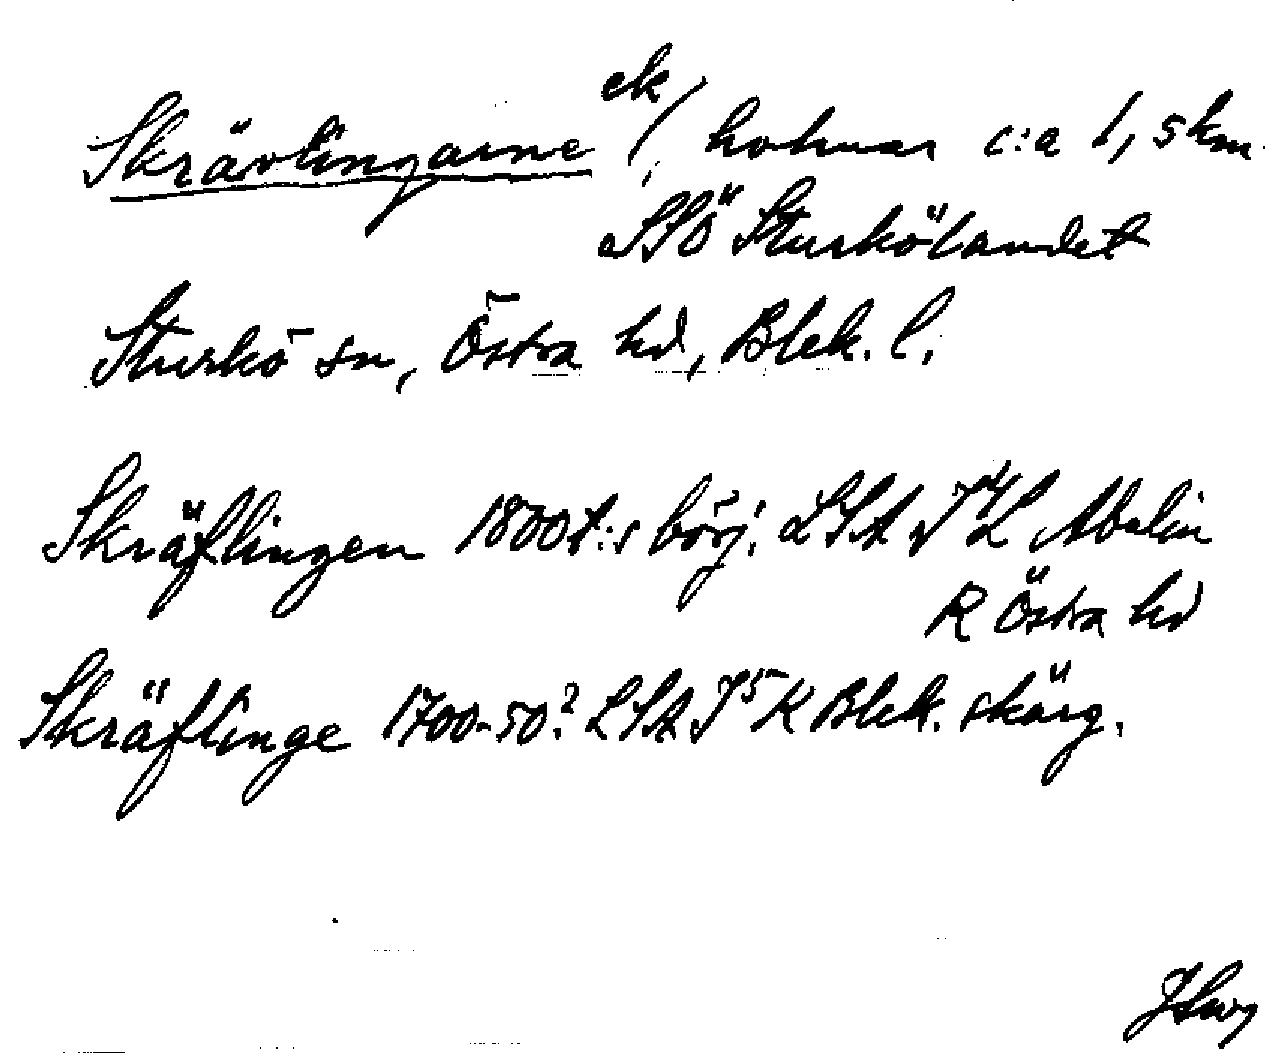 Skrävlingarne ek/, holmar c:a 1,5 km.
SSÖ Sturkölandet
Sturkö sn, Östra hd, Blek. l.
Skräflingen 1800t:s börj. LSA J⁴L Abelin
R Östra hd
Skräflinge 1700-50? LSA J⁵K Blek. skärg.